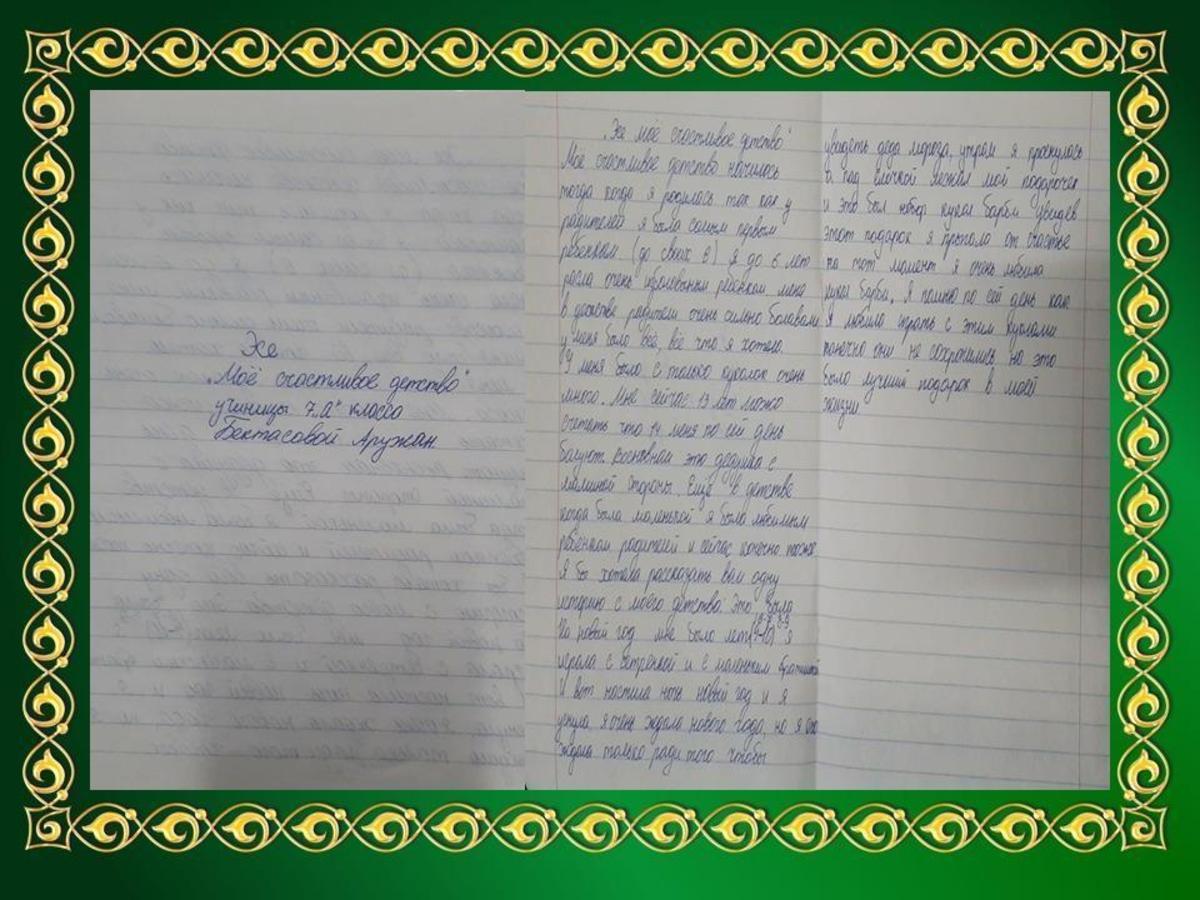 Эсе
"Моё счастливое детство"
ученицы 7 "А" класса
Бектасовой Аружан
"Эсе моё счастливое детство"
Моё счастливое детство началось
тогда когда я родилась так как у
родителей я была самым первым
ребенком (до своих 6) я до 6 лет
росла очень избалованым ребёнком. меня
в детстве родители очень сильно баловали
у меня было всё, всё что я хотела.
У меня было с только куколок очень
много. Мне сейчас 13 лет можо
считать что 14 меня по сей день
балуют. восновном это дедушка с
маминой стороны. Ещё в детстве
когда была маленькой я была любимым
ребёнком родителей и сейчас конечно тоже.
Я бы хотела рассказать вам одну
историю с моего детства. Это было
На новый год мне было лет я
играла с сетрёнкой и с маленьким братишкой
И вот настила ночь новый год и я
уснула, я очень ждала нового года, но я его
ждала только ради того чтобы
увидеть деда мороза, утром я проснулась
а под ёлочкой лежал мой подарочек
и это был набор кукол барби увидев
этот подарок я прыгала от счастье
на тот момент я очень любила
кукол барби. Я помню по сей день как
я любила играть с этим куклами
конечно они не сохронились но это
было лучший подарок в моей
жизни.